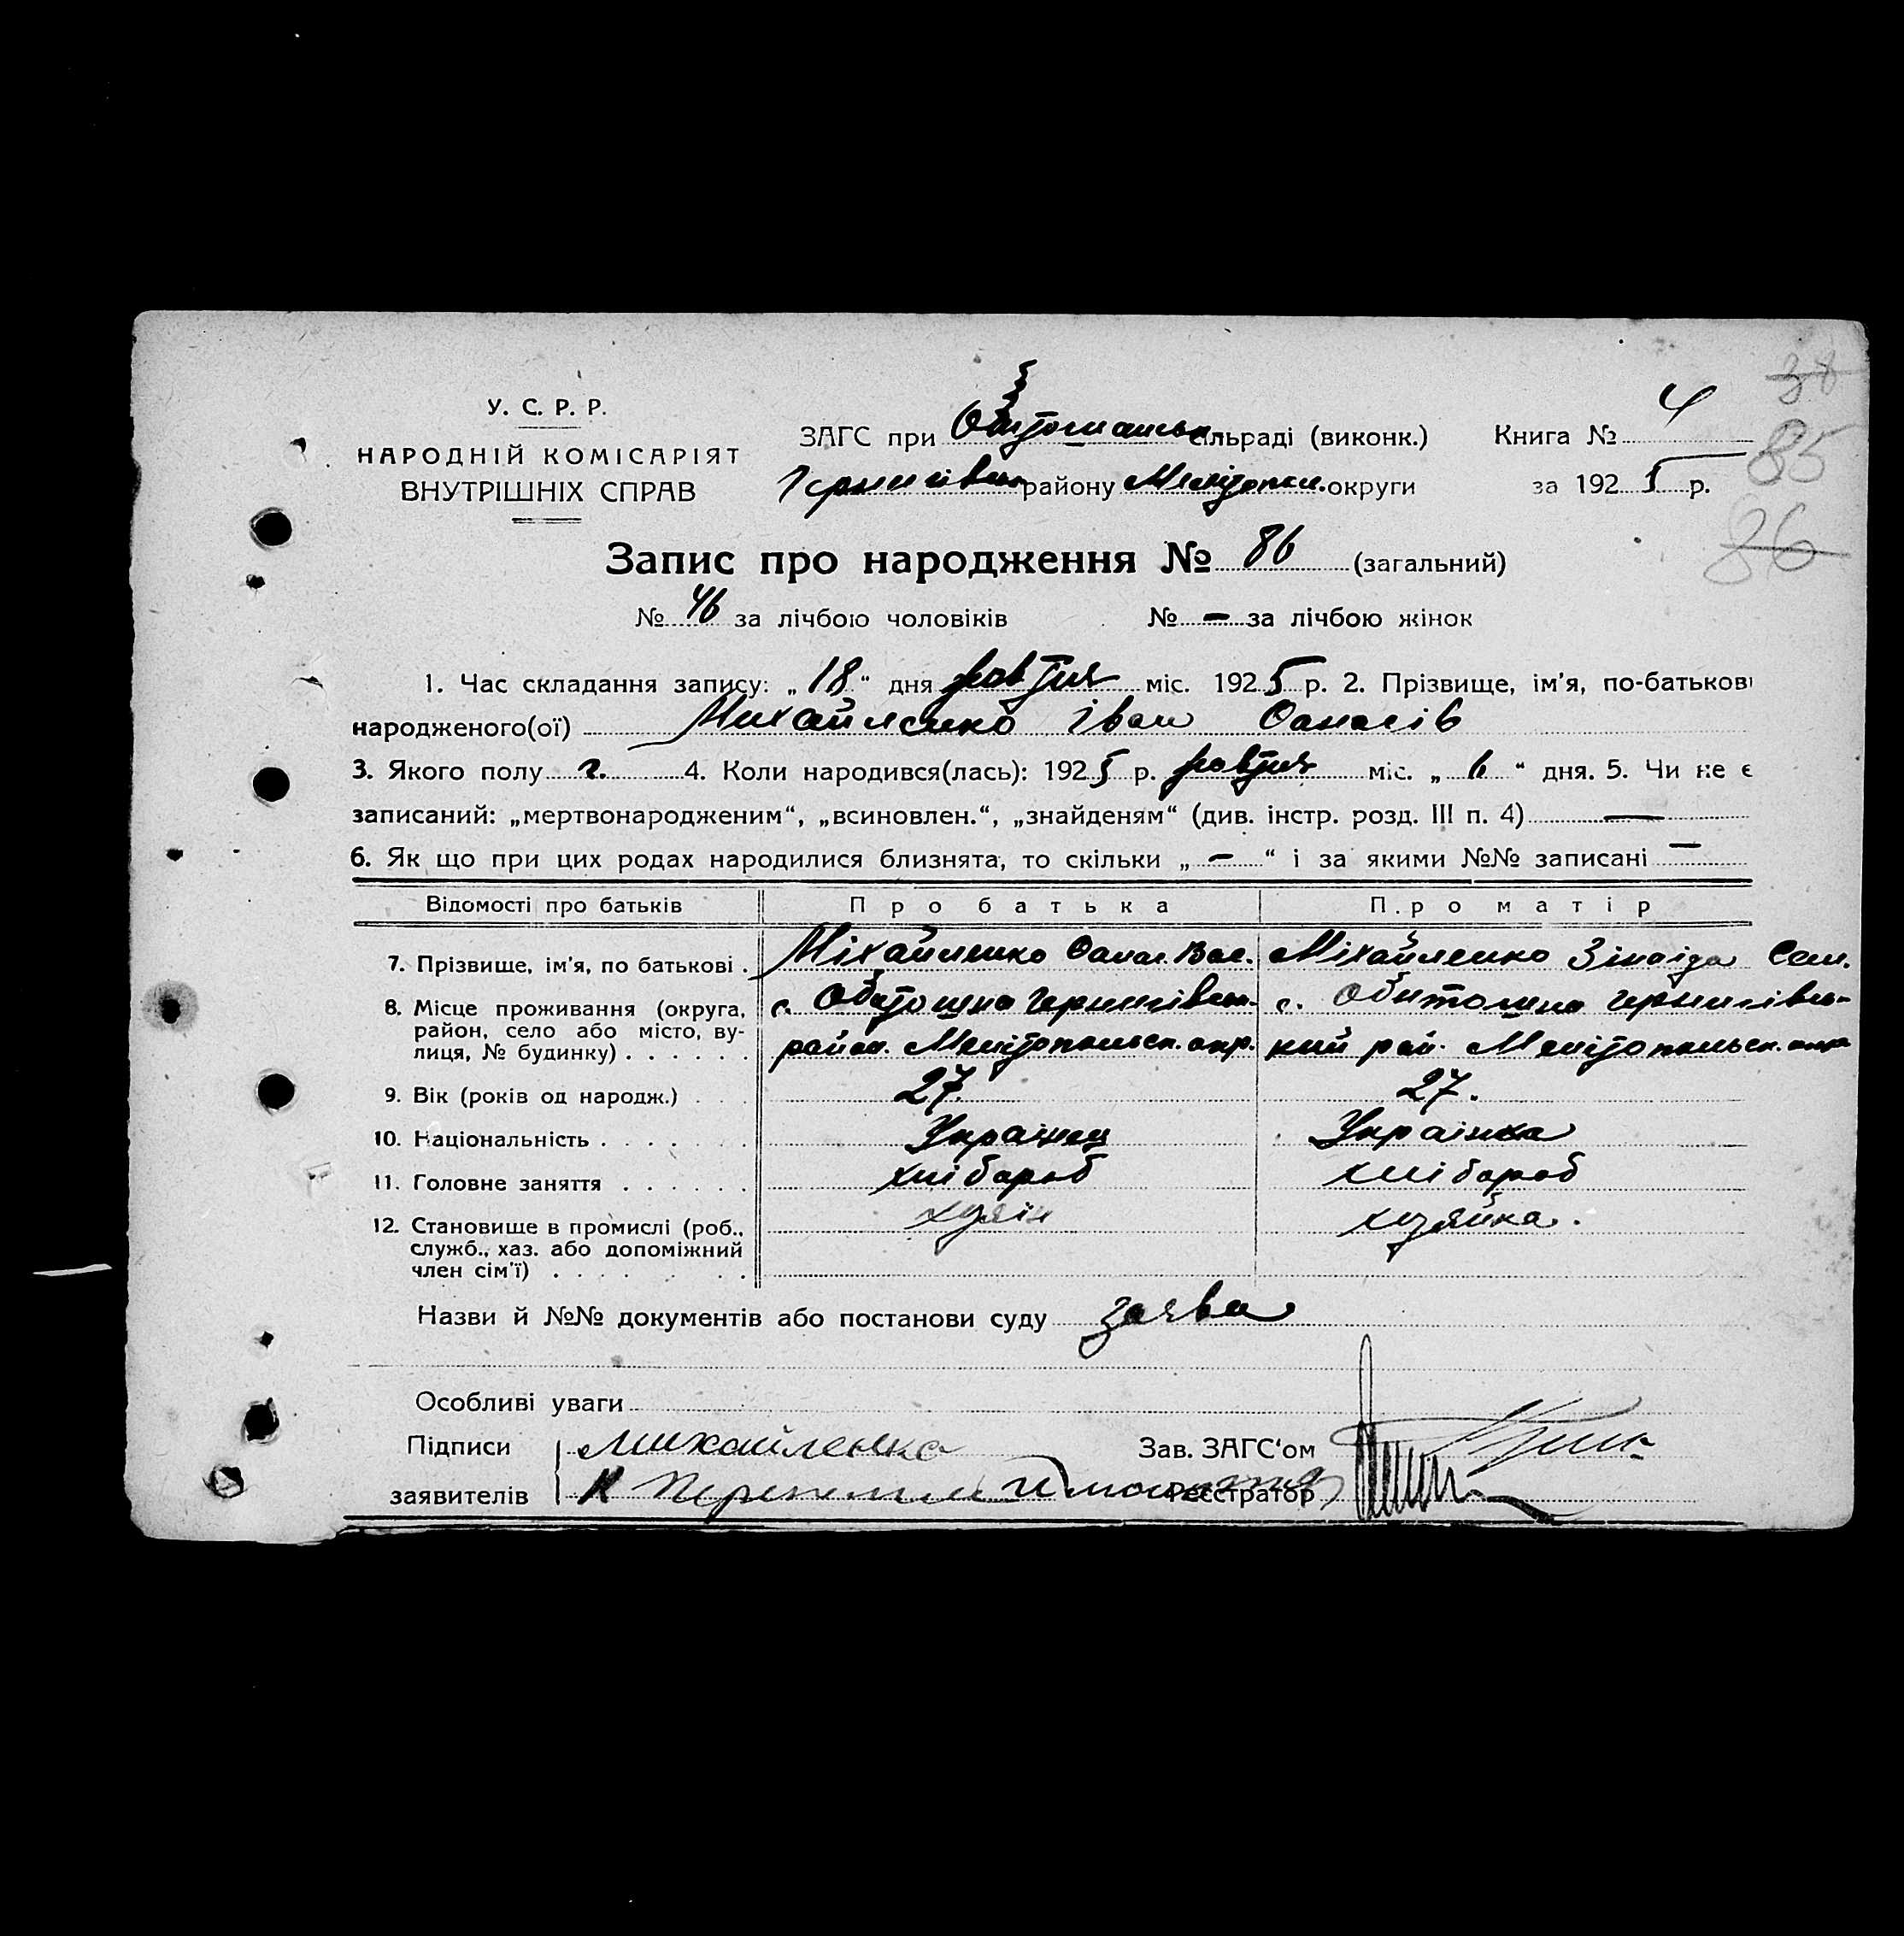 38
У. С. Р. Р.
НАРОДНІЙ КОМІСАРІЯТ
ВНУТРІШНІХ СПРАВ
ЗАГС при сільраді (виконк.) Книга № 4
85
району Мелітопол. округи за 1925 р.
86
Запис про народження № 86 (загальний)
№ 46 за лічбою чоловіків № — за лічбою жінок
1. Час складання запису: „18“ дня жовтня міс. 1925 р. 2. Прізвище, ім'я, по-батькові
народженого(ої) Михайленко Іван Опанасів
3. Якого полу ч. 4. Коли народився(лась): 1925 р. жовтня міс. „6“ дня. 5. Чи не є
записаний: „мертвонародженим“, „всиновлен.“, „знайденям“ (див. інстр. розд. III п. 4) —
6. Як що при цих родах народилися близнята, то скільки „ — “ і за якими №№ записані —
Відомості про батьків Про батька Про матір
7. Прізвище, ім'я, по батькові . Міхайленко Опанас Вас. Міхайленко Зінаіда Сем.
8. Місце проживання (округа, с. Обиточна Чернигівськ. с. Обиточна Чернигівсь-
район, село або місто, ву-
лиця, № будинку) . . . . . . район. Мелітопольськ. окр. кий рай. Мелітопольськ. окр.
9. Вік (років од народж.) . . . 27. 27.
10. Національність . . . . . . . Українец Українка
11. Головне заняття . . . . . . хлібороб хлібороб
12. Становище в промислі (роб., хазяін хазяйка.
служб., хаз. або допоміжний
член сім'ї) . . . . . . . .
Назви й №№ документів або постанови суду заява
Особливі уваги
Підписи Михайленко Зав. ЗАГС‘ом
заявителів Реєстратор